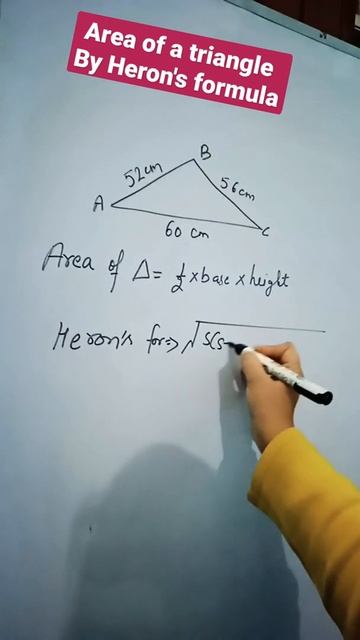 Area of a triangle
By Heron's formula
B
52cm
56cm
A
60 cm
C
Area of Δ= 1/2 x base x height
Heron's for=> √S(s-